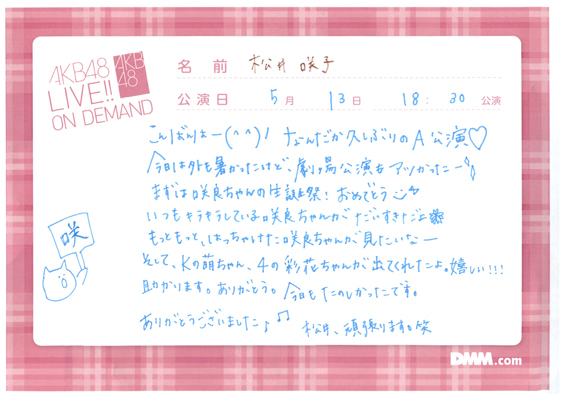 AKB48
LIVE!!
ON DEMAND
AKB
48
名 前 松井 咲子
公演日 5月 13日 18:30 公演
こんばんはー(^^)! なーんだか久しぶりのA公演♡
今日は外も暑かったけど、劇場公演もアツかったー
まずは咲良ちゃんの生誕祭!おめでとう
いつもキラキラしている咲良ちゃんがだいすきだよ
もっともっと、はっちゃけた咲良ちゃんが見たいなー
そして、Kの萌ちゃん、4の彩花ちゃんが出てくれたよ。嬉しい!!!
助かります。ありがとう。今日もたのしかったです。
ありがとうございました♪♫
松井、頑張ります。笑
咲
DMM.com